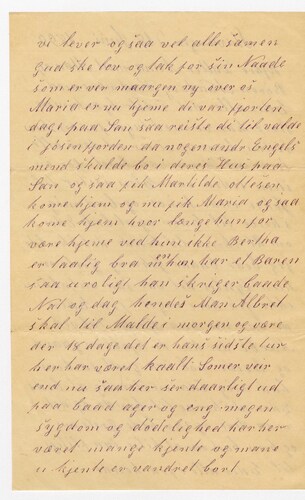 vi lever og saa vel alle samen
gud ske lov og tak for sin Naade
som er ver maargen ny over os
Maria er nu hjeme di var fjorten
dage paa San saa reiste di til valde
i jösenfjorden da nogen andr Engels
mend skulde bo i deres Hus paa
San og saa fik Martilde ollesen
kome hjem og nu fik Maria og saa
kome hjem hvor længe hun for
være hjeme ved hun ikke Bertha
er taalig bra men hun har et Baren
saa uroligt han skriger baade
Nat og dag hendes Man Albret
skal til Malde i morgen og være
der 18 dage det er hans sidste tur
her har været kaalt Somer veir
end nu saa her ser daarligt ud
paa baad ager og eng megen
sygdom og dödelighed har her
været mange kjente og mane
u kjente er vandret bort